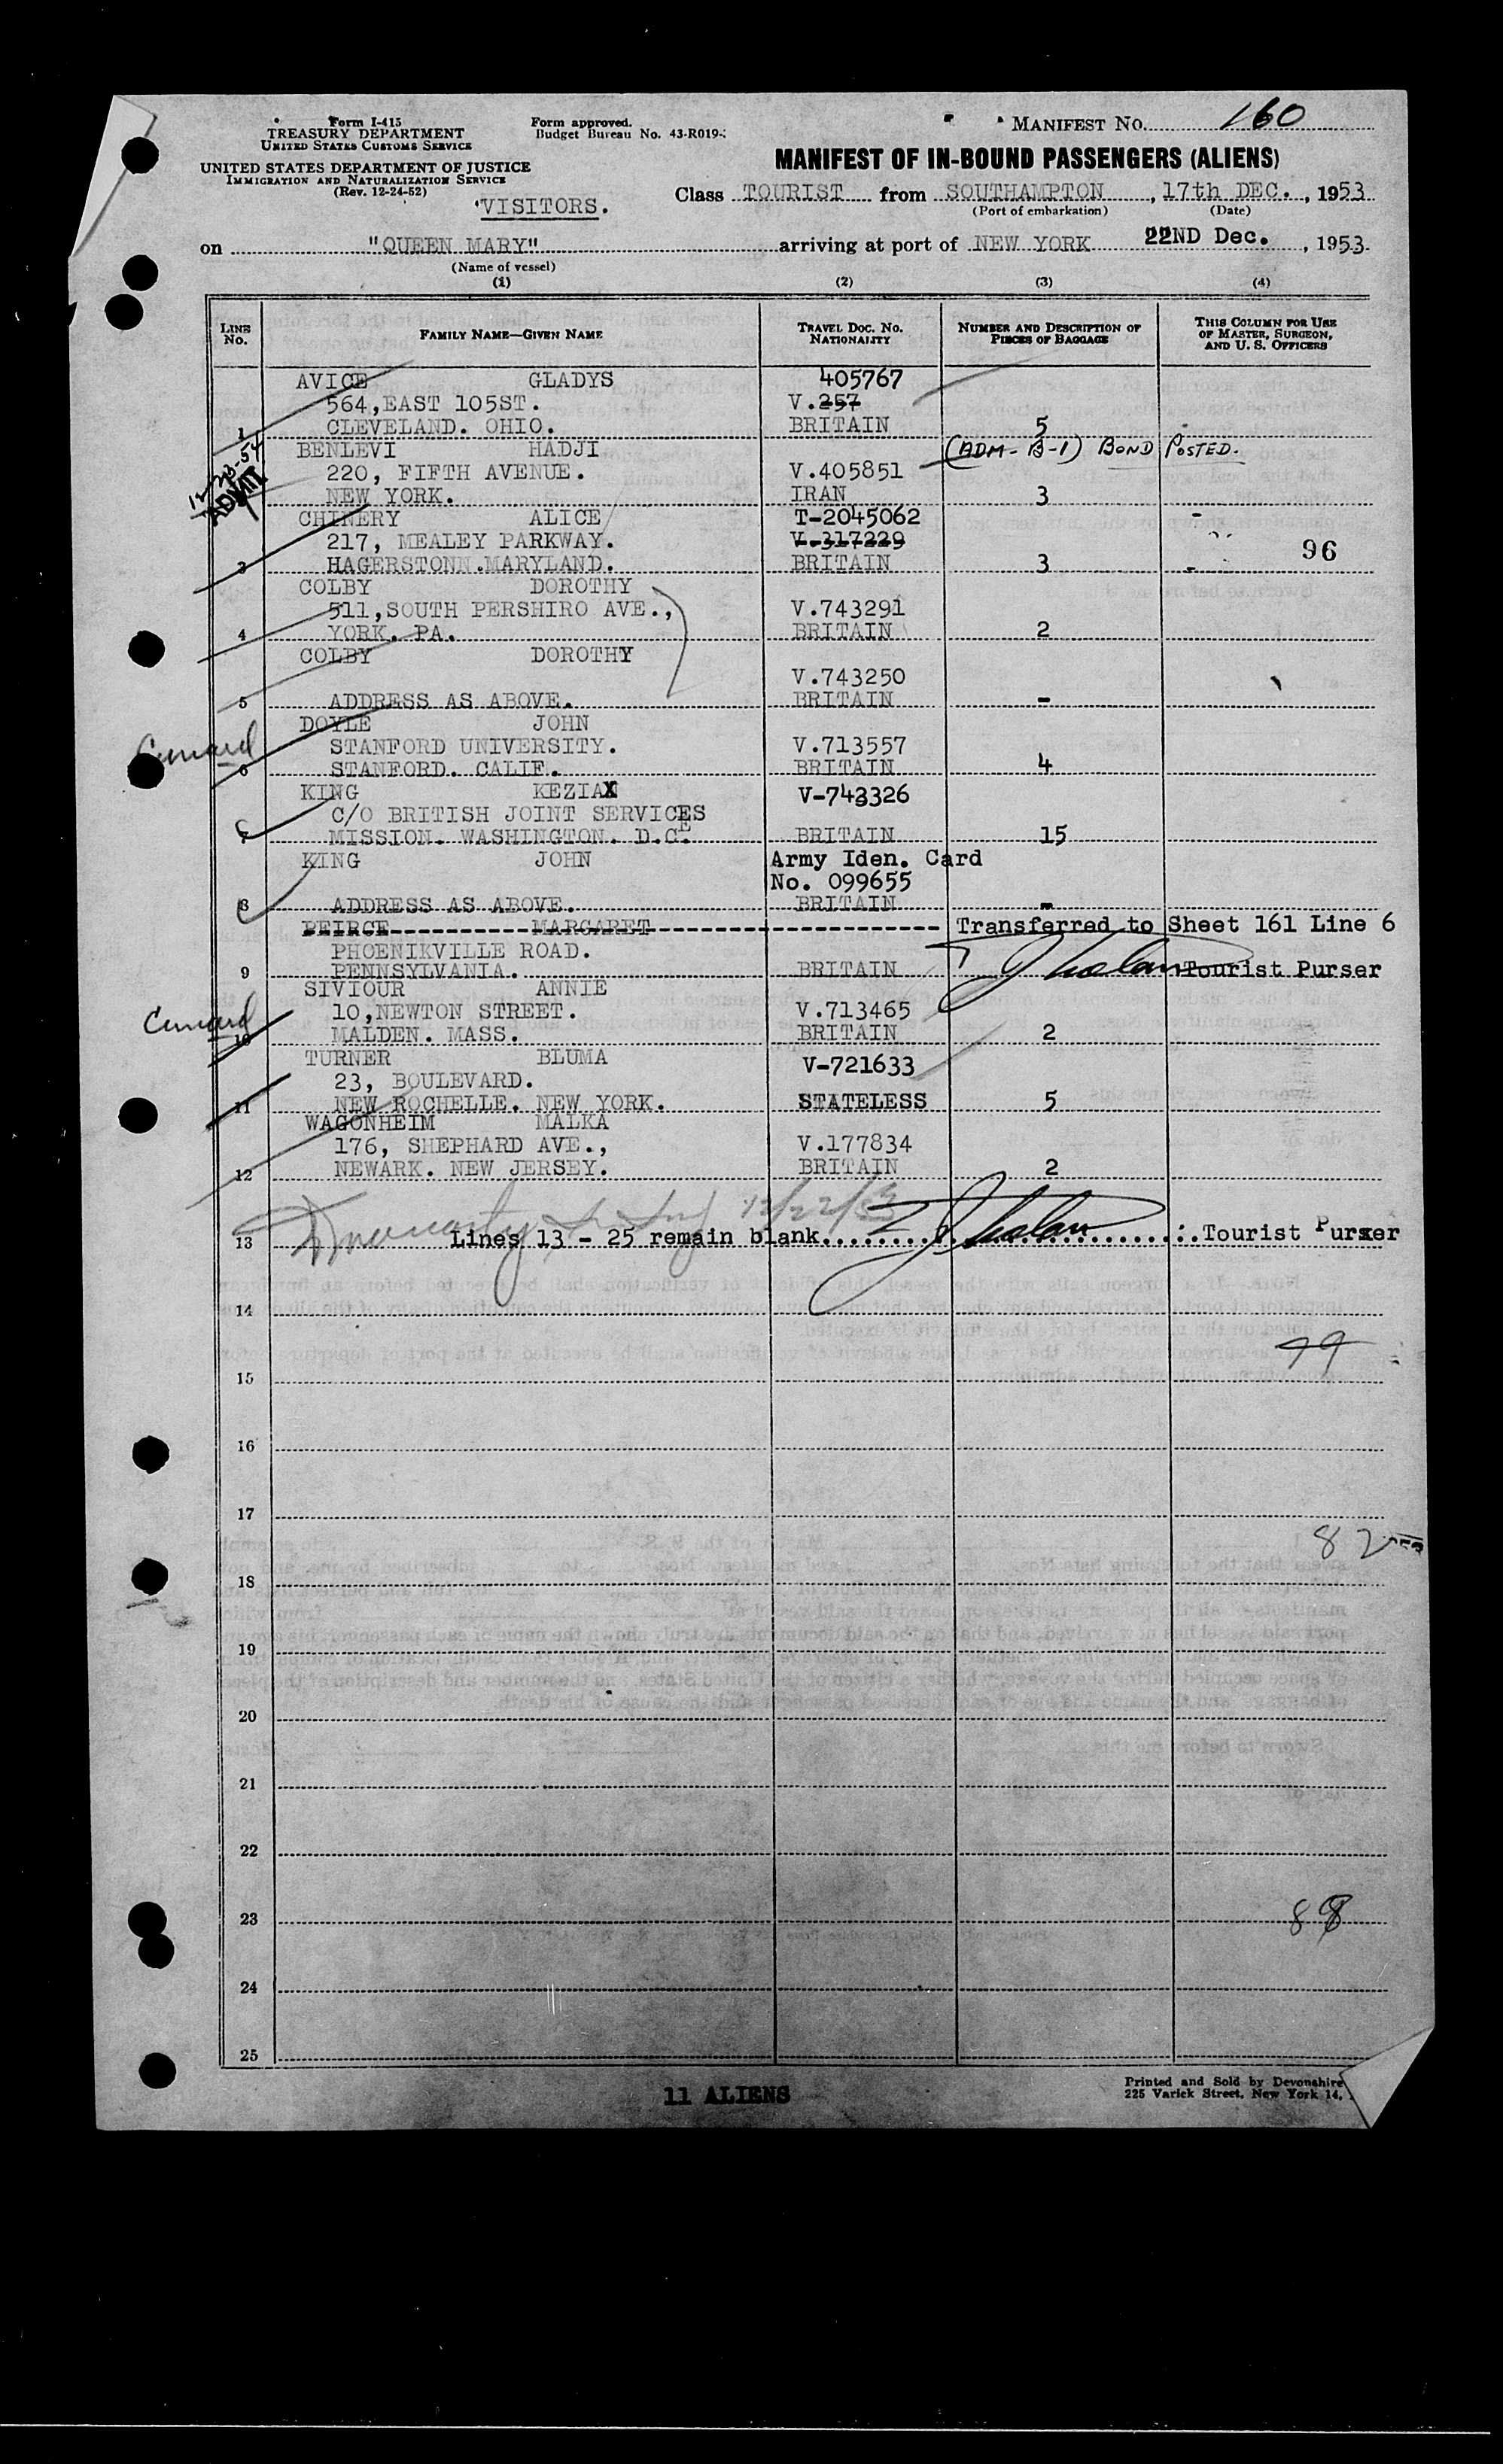 Form I-415
TREASURY DEPARTMENT
UNITED STATES CUSTOMS SERVICE
UNITED STATES DEPARTMENT OF JUSTICE
IMMIGRATION AND NATURALIZATION SERVICE
(Rev. 12-24-52)
Form approved.
Budget Bureau No. 43-R019-
MANIFEST NO. 160
MANIFEST OF IN-BOUND PASSENGERS (ALIENS)
VISITORS.
Class TOURIST from SOUTHAMPTON, 17th DEC., 1953
(Port of embarkation) (Date)
on "QUEEN MARY" arriving at port of NEW YORK 22ND Dec., 1953
(Name of vessel)
(1) (2) (3) (4)
LINE No. FAMILY NAME—GIVEN NAME TRAVEL DOC. NO. NATIONALITY NUMBER AND DESCRIPTION OF PIECES OF BAGGAGE THIS COLUMN FOR USE OF MASTER, SURGEON, AND U. S. OFFICERS
AVICE GLADYS 405767
564,EAST 105ST. V.257
1 CLEVELAND. OHIO. BRITAIN 5
BENLEVI HADJI (ADM- B-1) BOND POSTED.
220, FIFTH AVENUE. V.405851
ADMIT NEW YORK. IRAN 3
CHINERY ALICE T-2045062
217, MEALEY PARKWAY. V-317229 96
3 HAGERSTONN.MARYLAND. BRITAIN 3
COLBY DOROTHY
511,SOUTH PERSHIRO AVE., V.743291
4 YORK. PA. BRITAIN 2
COLBY DOROTHY
V.743250
5 ADDRESS AS ABOVE. BRITAIN -
DOYLE JOHN
Cunard STANFORD UNIVERSITY. V.713557
6 STANFORD. CALIF. BRITAIN 4
KING KEZIAX V-743326
C/O BRITISH JOINT SERVICES
7 MISSION. WASHINGTON. D.C. BRITAIN 15
KING JOHN Army Iden. Card
No. 099655
8 ADDRESS AS ABOVE. BRITAIN -
PEIRCE MARGARET Transferred to Sheet 161 Line 6
PHOENIKVILLE ROAD.
9 PENNSYLVANIA. BRITAIN Tourist Purser
SIVIOUR ANNIE
Cunard 10,NEWTON STREET. V.713465
10 MALDEN. MASS. BRITAIN 2
TURNER BLUMA V-721633
23, BOULEVARD.
11 NEW ROCHELLE. NEW YORK. STATELESS 5
WAGONHEIM MALKA
176, SHEPHARD AVE., V.177834
12 NEWARK. NEW JERSEY. BRITAIN 2
12/22/53
13 Lines 13 - 25 remain blank. Tourist Purser
14
79
15
16
17
82
18
19
20
21
22
23 88
24
25
11 ALIENS
Printed and Sold by Devonshire
225 Varick Street, New York 14,